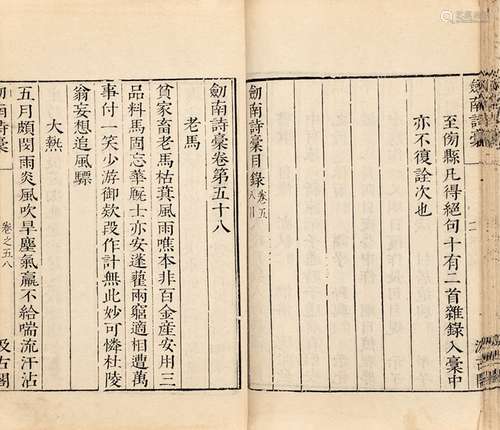 劍南詩稾
二
至傍縣凡得絕句十有二首雜錄入稾中
亦不復詮次也
劍南詩稾目錄
卷五
八目
劍南詩稾卷第五十八
老馬
貧家畜老馬枯萁風雨噍本非百金産安用三
品料馬固忘華厩士亦安蓬藋兩窮適相遭萬
事付一笑少游御欵段作計無此妙可憐杜陵
翁妄想追風驃
大熱
五月頗閔雨炎風吹旱塵氣羸不給喘流汗沾
劍南詩稾
卷之五八
汲古閣